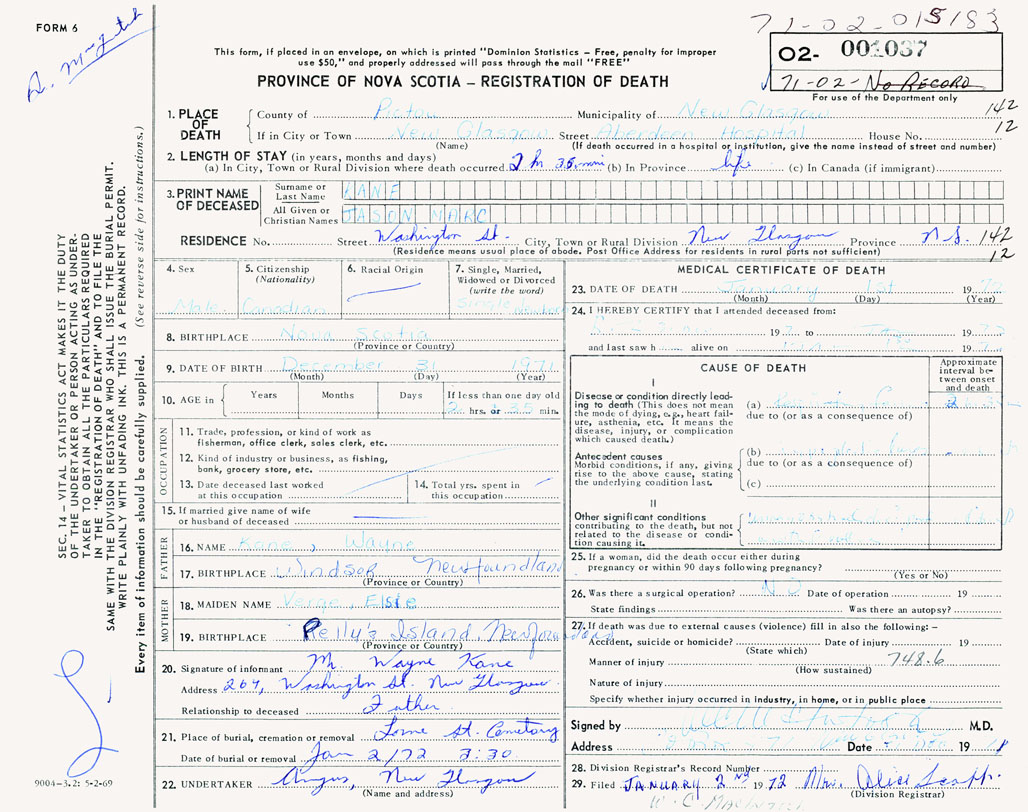 FORM 6
71-02-015183
This form, if placed in an envelope, on which is printed "Dominion Statistics – Free, penalty for improper
use $50," and properly addressed will pass through the mail "FREE"
02- 001037
PROVINCE OF NOVA SCOTIA – REGISTRATION OF DEATH
71-02-No RECORD
For use of the Department only
1. PLACE OF DEATH
County of Pictou Municipality of New Glasgow 142
If in City or Town New Glasgow Street Aberdeen Hospital House No. 12
(Name) (If death occurred in a hospital or institution, give the name instead of street and number)
2. LENGTH OF STAY (in years, months and days)
(a) In City, Town or Rural Division where death occurred 2 hr 35 min (b) In Province life (c) In Canada (if immigrant)
3. PRINT NAME OF DECEASED
Surname or Last Name KANE
All Given or Christian Names JASON MARC
RESIDENCE No. Street Washington St. City, Town or Rural Division New Glasgow Province N.S. 142
(Residence means usual place of abode. Post Office Address for residents in rural parts not sufficient) 12
4. Sex Male
5. Citizenship (Nationality) Canadian
6. Racial Origin
7. Single, Married, Widowed or Divorced (write the word) Single
8. BIRTHPLACE Nova Scotia
(Province or Country)
9. DATE OF BIRTH December 31 1971
(Month) (Day) (Year)
10. AGE in Years Months Days If less than one day old
2 hrs. or 35 min.
OCCUPATION
11. Trade, profession, or kind of work as
fisherman, office clerk, sales clerk, etc.
12. Kind of industry or business, as fishing,
bank, grocery store, etc.
13. Date deceased last worked
at this occupation
14. Total yrs. spent in
this occupation
15. If married give name of wife
or husband of deceased
FATHER
16. NAME Kane, Wayne
17. BIRTHPLACE Windsor Newfoundland
(Province or Country)
MOTHER
18. MAIDEN NAME Verge, Elsie
19. BIRTHPLACE Pelly's Island, Newfoundland
(Province or Country)
20. Signature of informant Mr. Wayne Kane
Address 264, Washington St. New Glasgow
Relationship to deceased Father
21. Place of burial, cremation or removal Lorne St. Cemetary
Date of burial or removal Jan 2/72 3:30
22. UNDERTAKER Angus, New Glasgow
(Name and address)
9004-3.2: 5-2-69
SEC. 14 – VITAL STATISTICS ACT MAKES IT THE DUTY
OF THE UNDERTAKER OR PERSON ACTING AS UNDER-
TAKER TO OBTAIN ALL THE PARTICULARS REQUIRED
IN THE "REGISTRATION OF DEATH" AND TO FILE THE
SAME WITH THE DIVISION REGISTRAR WHO SHALL ISSUE THE BURIAL PERMIT.
WRITE PLAINLY WITH UNFADING INK. THIS IS A PERMANENT RECORD.
Every item of information should be carefully supplied. (See reverse side for instructions.)
MEDICAL CERTIFICATE OF DEATH
23. DATE OF DEATH January 1st 1972
(Month) (Day) (Year)
24. I HEREBY CERTIFY that I attended deceased from:
197 to 1972
and last saw h alive on 197
CAUSE OF DEATH
Approximate interval between onset and death
I
Disease or condition directly lead-
ing to death (This does not mean
the mode of dying, e.g., heart fail-
ure, asthenia, etc. It means the
disease, injury, or complication
which caused death.)
(a)
due to (or as a consequence of)
Antecedent causes
Morbid conditions, if any, giving
rise to the above cause, stating
the underlying condition last.
(b)
due to (or as a consequence of)
(c)
II
Other significant conditions
contributing to the death, but not
related to the disease or condi-
tion causing it.
25. If a woman, did the death occur either during
pregnancy or within 90 days following pregnancy?
(Yes or No)
26. Was there a surgical operation? NO Date of operation 19
State findings Was there an autopsy?
27. If death was due to external causes (violence) fill in also the following: –
Accident, suicide or homicide? Date of injury 19
(State which)
Manner of injury 748.6
(How sustained)
Nature of injury
Specify whether injury occurred in industry, in home, or in public place
Signed by M.D.
Address Date 19
28. Division Registrar's Record Number
29. Filed JANUARY 2nd 1972 Mrs. Alice
(Division Registrar)